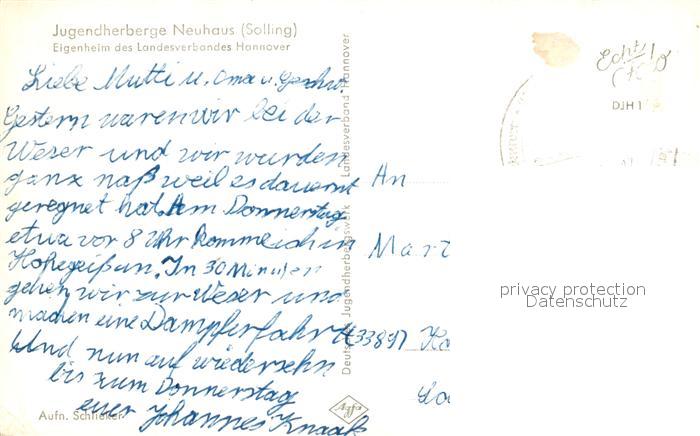 Jugendherberge Neuhaus (Solling)
Eigenheim des Landesverbandes Hannover
Liebe Mutti u. Oma u. Geschw.
Gestern waren wir bei der
Weser und wir wurden
ganz naß weil es dauernt
geregnet hat. Am Donnerstag
etwa vor 8 Uhr komme ich in
an. In 30 Minuten
gehen wir zur Weser und
machen eine Dampferfahrt
Und nun auf wiedersehn
bis zum Donnerstag
euer Johannes Knaak
Aufn. Schlieker
Deutsches Jugendherbergswerk Landesverband Hannover
Agfa
Echt
DJH 1
An
Mart
33897 Ka
privacy protection
Datenschutz